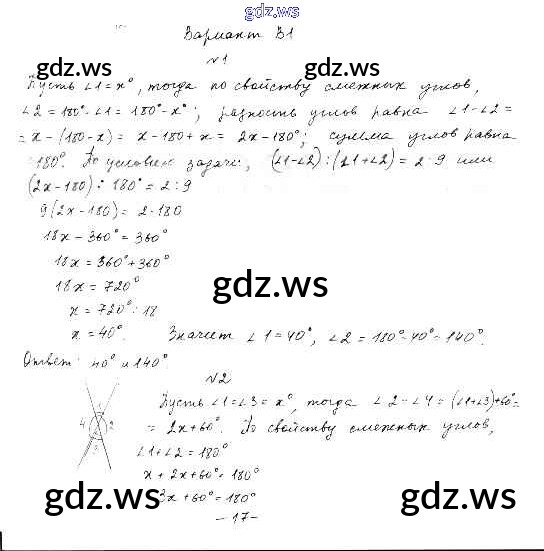 gdz.ws
Вариант В1
№1
gdz.ws gdz.ws
Пусть ∠1 = x°, тогда по свойству смежных углов,
∠2 = 180° - ∠1 = 180° - x°; разность углов равна ∠1 - ∠2 =
= x - (180 - x) = x - 180 + x = 2x - 180°; сумма углов равна
180°. По условию задачи, (∠1-∠2) : (∠1+∠2) = 2 : 9 или
(2x - 180) : 180° = 2 : 9
9(2x - 180) = 2·180
18x - 360° = 360°
18x = 360° + 360°
18x = 720°
gdz.ws
x = 720° : 18
x = 40°. Значит ∠1 = 40°, ∠2 = 180° - 40° = 140°.
Ответ: 40° и 140°.
№2
Пусть ∠1 = ∠3 = x°, тогда ∠2 = ∠4 = (∠1+∠3)+60° =
4 2
= 2x + 60°. По свойству смежных углов,
3
∠1 + ∠2 = 180°
x + 2x + 60° = 180°
3x + 60° = 180°
gdz.ws gdz.ws
- 17 -